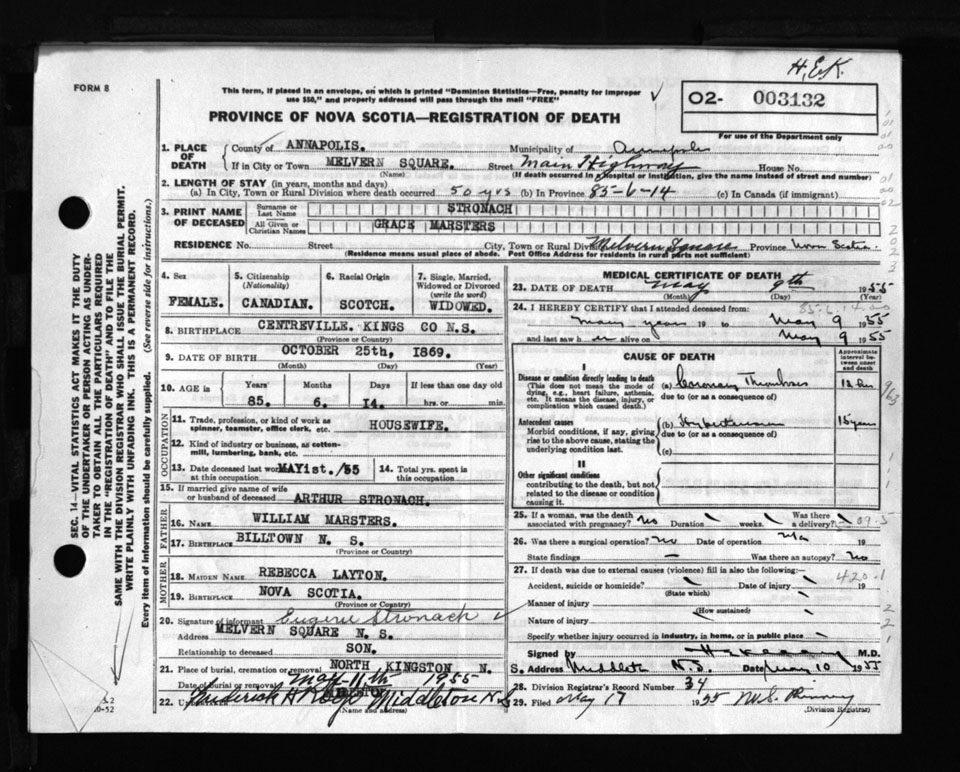 H.E.K.
FORM 8
This form, if placed in an envelope, on which is printed "Dominion Statistics—Free, penalty for improper
use $50," and properly addressed will pass through the mail "FREE"
O2- 003132
PROVINCE OF NOVA SCOTIA—REGISTRATION OF DEATH
For use of the Department only
1. PLACE OF DEATH
County of ANNAPOLIS. Municipality of Annapolis
If in City or Town MELVERN SQUARE. Street Main Highway House No.
(Name) (If death occurred in hospital or institution, give the name instead of street and number)
2. LENGTH OF STAY (in years, months and days)
(a) In City, Town or Rural Division where death occurred 50 yrs (b) In Province 85-6-14 (c) In Canada (if immigrant)
3. PRINT NAME OF DECEASED
Surname or Last Name STRONACH
All Given or Christian Names GRACE MARSTERS
RESIDENCE No. Street City, Town or Rural Div. Melvern Square Province Nova Scotia.
(Residence means usual place of abode. Post Office Address for residents in rural parts not sufficient)
4. Sex FEMALE.
5. Citizenship (Nationality) CANADIAN.
6. Racial Origin SCOTCH.
7. Single, Married, Widowed or Divorced (write the word) WIDOWED.
8. BIRTHPLACE CENTREVILLE. KINGS CO N.S.
(Province or Country)
9. DATE OF BIRTH OCTOBER 25th, 1869.
(Month) (Day) (Year)
10. AGE in Years 85. Months 6. Days 14. If less than one day old
hrs. or min.
OCCUPATION
11. Trade, profession, or kind of work as
spinner, teamster, office clerk, etc. HOUSEWIFE.
12. Kind of industry or business, as cotton-
mill, lumbering, bank, etc.
13. Date deceased last worked at this occupation MAY1st./55
14. Total yrs. spent in this occupation
15. If married give name of wife
or husband of deceased ARTHUR STRONACH.
FATHER
16. NAME WILLIAM MARSTERS.
17. BIRTHPLACE BILLTOWN N. S.
(Province or Country)
MOTHER
18. MAIDEN NAME REBECCA LAYTON.
19. BIRTHPLACE NOVA SCOTIA.
(Province or Country)
20. Signature of informant Eugene Stronach
Address MELVERN SQUARE N. S.
Relationship to deceased SON.
21. Place of burial, cremation or removal NORTH KINGSTON N. S.
Date of burial or removal May 11th 1955
22. Middleton N.S
(Name and Address)
MEDICAL CERTIFICATE OF DEATH
23. DATE OF DEATH May 9th 1955
(Month) (Day) (Year)
85-6-14
24. I HEREBY CERTIFY that I attended deceased from:
many years 19 to May 9 1955
and last saw her alive on May 9 1955
CAUSE OF DEATH
Approximate interval between onset and death
I
Disease or condition directly leading to death
(This does not mean the mode of
dying, e.g., heart failure, asthenia,
etc. It means the disease, injury, or
complication which caused death.)
(a) Coronary Thrombosis
due to (or as a consequence of)
Antecedent causes
Morbid conditions, if any, giving
rise to the above cause, stating the
underlying condition last.
(b) Hypertension 15 years
due to (or as a consequence of)
(c)
II
Other significant conditions
contributing to the death, but not
related to the disease or condition
causing it.
25. If a woman, was the death Was there
associated with pregnancy? no Duration weeks. a delivery?
26. Was there a surgical operation? no Date of operation 19
State findings — Was there an autopsy? No
27. If death was due to external causes (violence) fill in also the following:
420.1
Accident, suicide or homicide? Date of injury 19
(State which)
Manner of injury
(How sustained)
Nature of injury
Specify whether injury occurred in industry, in home, or in public place
Signed by M.D.
Address Middleton N.S. Date May 10 1955
28. Division Registrar's Record Number 34
29. Filed May 17 1955
(Division Registrar)
SEC. 14—VITAL STATISTICS ACT MAKES IT THE DUTY
OF THE UNDERTAKER OR PERSON ACTING AS UNDER-
TAKER TO OBTAIN ALL THE PARTICULARS REQUIRED
IN THE "REGISTRATION OF DEATH" AND TO FILE THE
SAME WITH THE DIVISION REGISTRAR WHO SHALL ISSUE THE BURIAL PERMIT.
WRITE PLAINLY WITH UNFADING INK. THIS IS A PERMANENT RECORD.
Every item of information should be carefully supplied. (See reverse side for instructions.)